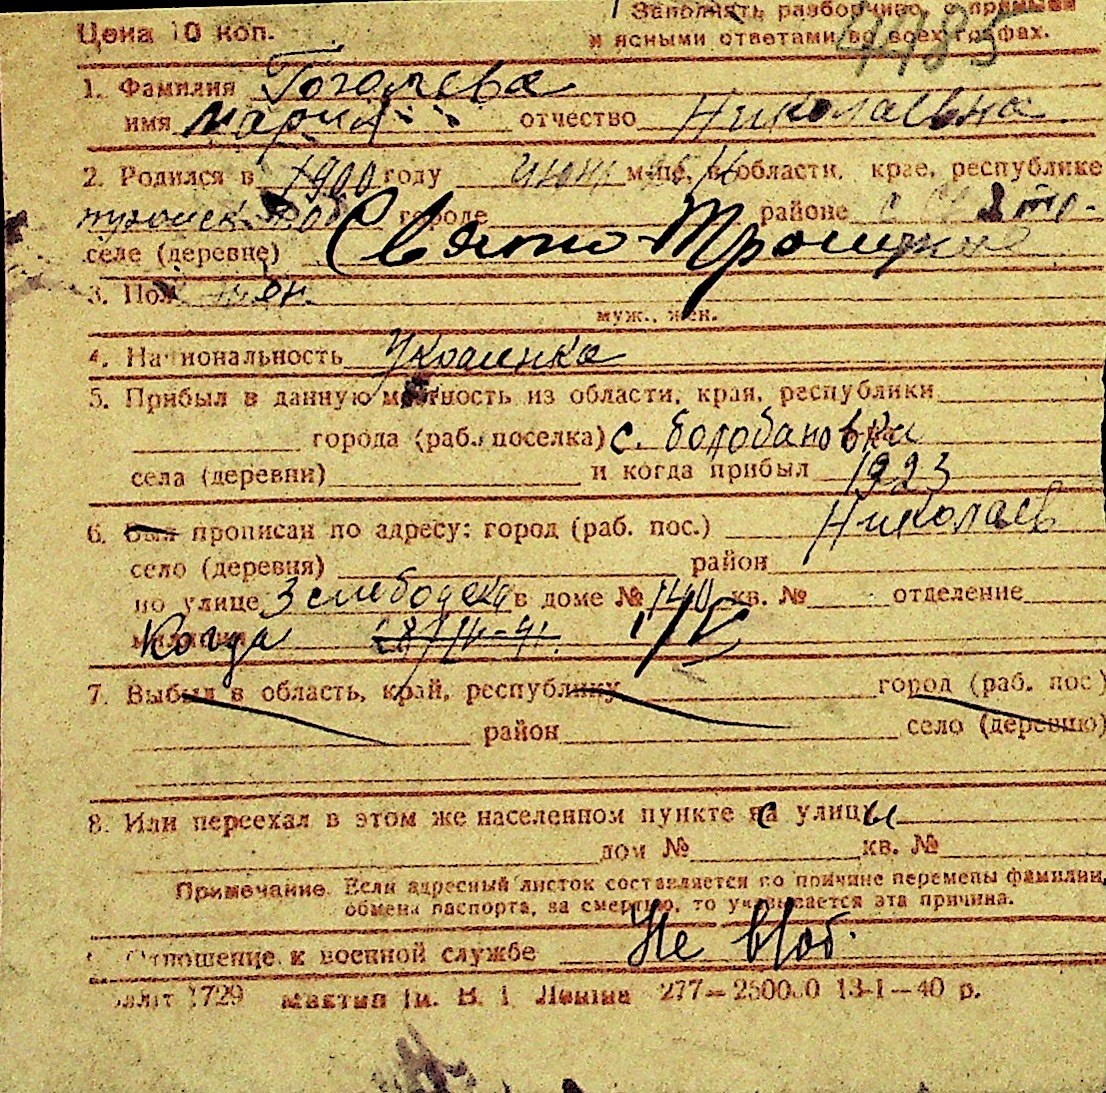 Цена 10 коп.
Заполнять разборчиво, с прямыми
и ясными ответами во всех графах.
4485
1. Фамилия Гоголева
имя Мария отчество Николаевна
2. Родился в 1900 году июня м-це, в области, крае, республике
городе районе
селе (деревне) Свято-Троицкое
3. Пол жен.
муж., жен.
4. Национальность Украинка
5. Прибыл в данную местность из области, края, республики
города (раб. поселка) с. Болобановка
села (деревни) и когда прибыл 1923
6. Был прописан по адресу: город (раб. пос.) Николаев
село (деревня) район
по улице 3 слободская в доме № 140 кв. № отделение
Когда
7. Выбыл в область, край, республику город (раб. пос)
район село (деревню)
8. Или переехал в этом же населенном пункте с улицы
дом № кв. №
Примечание. Если адресный листок составляется по причине перемены фамилии,
обмена паспорта, за смертью, то указывается эта причина.
Отношение к военной службе Не в/об.
1729 им. В. И. Ленина 277—250000 13-1—40 р.